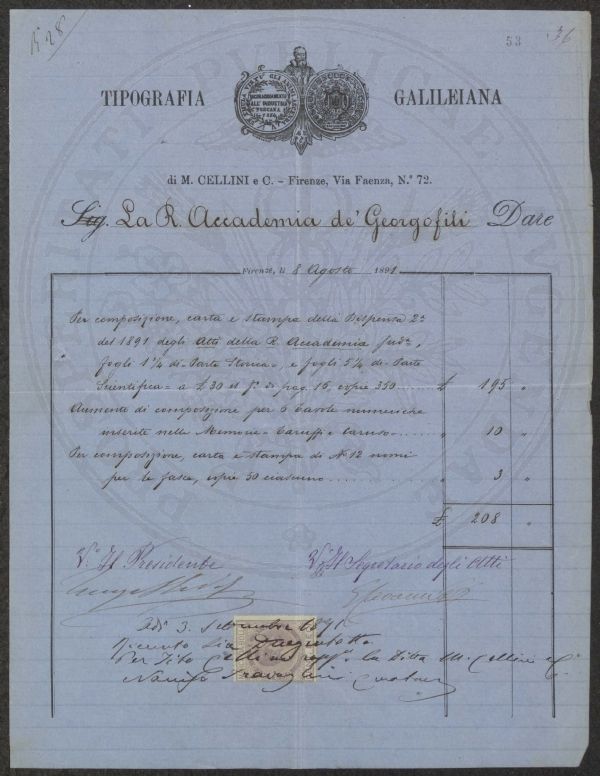 N 28
53
36
TIPOGRAFIA GALILEIANA
INCORAGGIAMENTO
ALL'INDUSTRIA
TOSCANA
1854
di M. CELLINI e C. - Firenze, Via Faenza, N.° 72.
Sig. La R. Accademia de' Georgofili Dare
Firenze, li 8 Agosto 1891
Per composizione, carta e stampa della Dispensa 2a
del 1891 degli Atti della R. Accademia suda,
fogli 1 1/4 di Parte Storica, e fogli 5 1/4 di Parte
Scientifica = a £ 30 il f.° di pag. 16, copie 350 ..... £ 195 "
Aumento di composizione per 6 Tavole numeriche
inserite nelle Memorie = Caruffi e Caruso ....... " 10 "
Per composizione, carta e stampa di N° 12 nomi
per le fasce, copie 50 ciascuno ....... " 3 "
£ 208 "
V.° Il Presidente V.° Il Segretario degli Atti
Adì 3. Settembre 1891
Ricevuto Lire Duegentotto
Per Tito Cellini la Ditta M. Cellini e C.